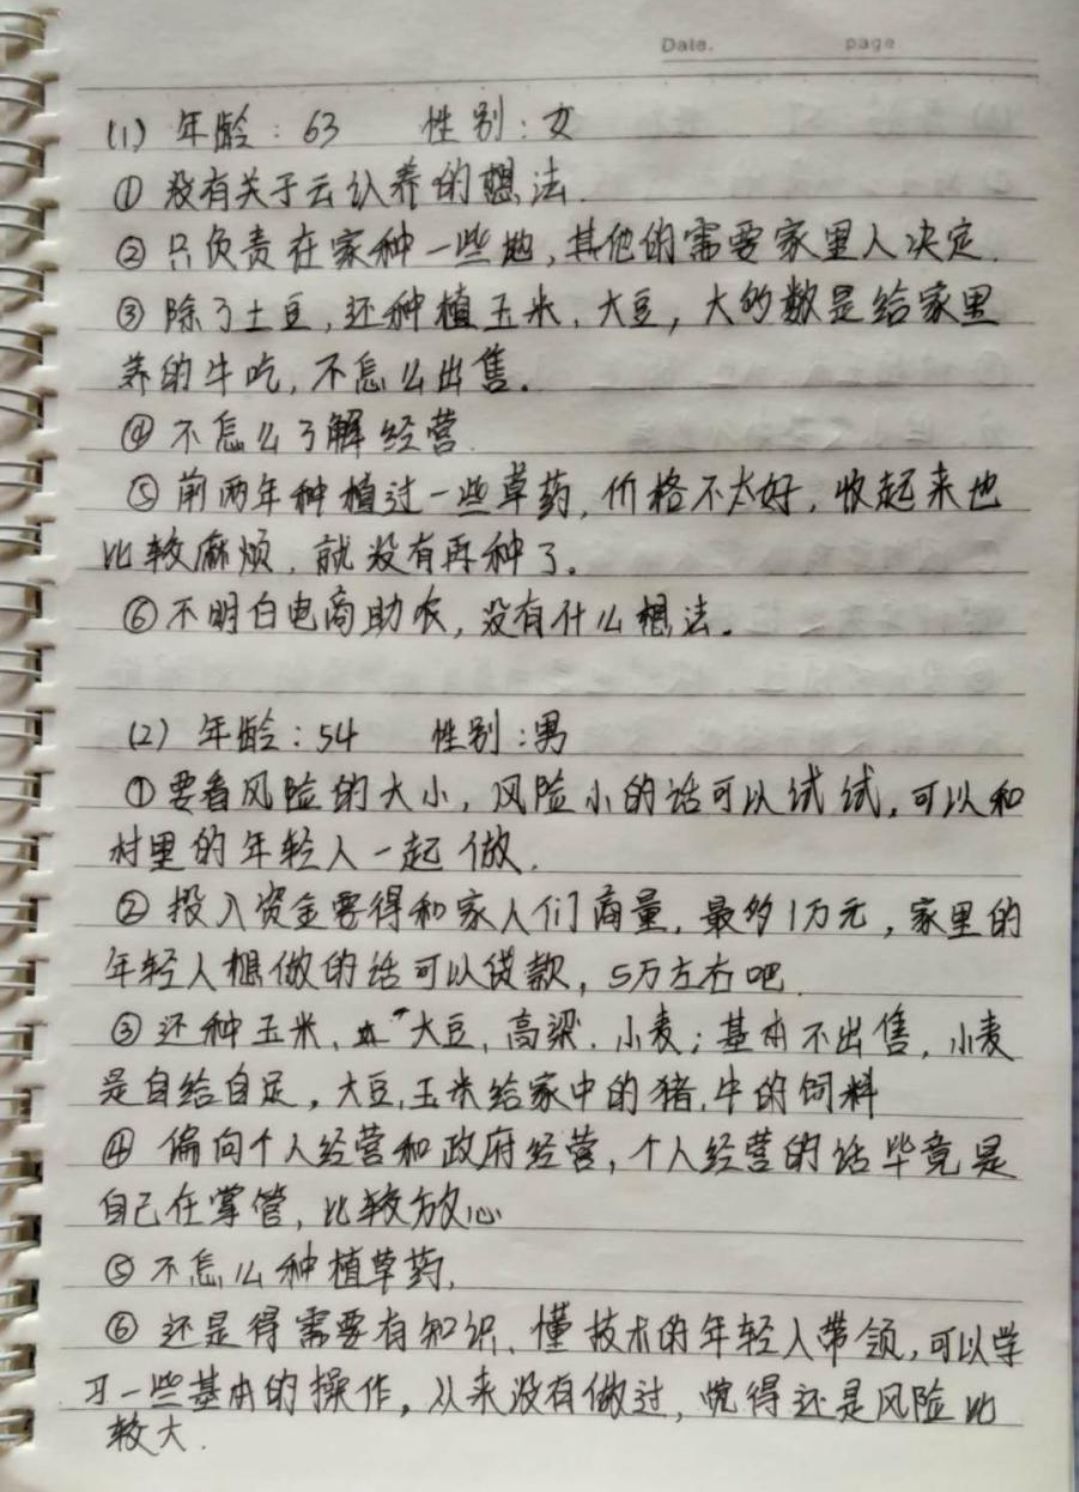 Date. page
(1) 年龄：63 性别：女
① 没有关于云认养的想法.
② 只负责在家种一些地,其他的需要家里人决定.
③ 除了土豆,还种植玉米、大豆,大的数是给家里
养的牛吃,不怎么出售。
④ 不怎么了解经营.
⑤ 前两年种植过一些草药,价格不太好,收起来也
比较麻烦,就没有再种了。
⑥ 不明白电商助农,没有什么想法。
(2) 年龄：54 性别：男
① 要看风险的大小,风险小的话可以试试,可以和
村里的年轻人一起做.
② 投入资金要得和家人们商量,最多1万元,家里的
年轻人想做的话可以贷款,5万左右吧.
③ 还种玉米、大豆、高粱、小麦;基本不出售,小麦
是自给自足,大豆,玉米给家中的猪,牛的饲料
④ 偏向个人经营和政府经营,个人经营的话毕竟是
自己在掌管,比较放心
⑤ 不怎么种植草药,
⑥ 还是得需要有知识、懂技术的年轻人带领,可以学
习一些基本的操作,从来没有做过,觉得还是风险比
较大.